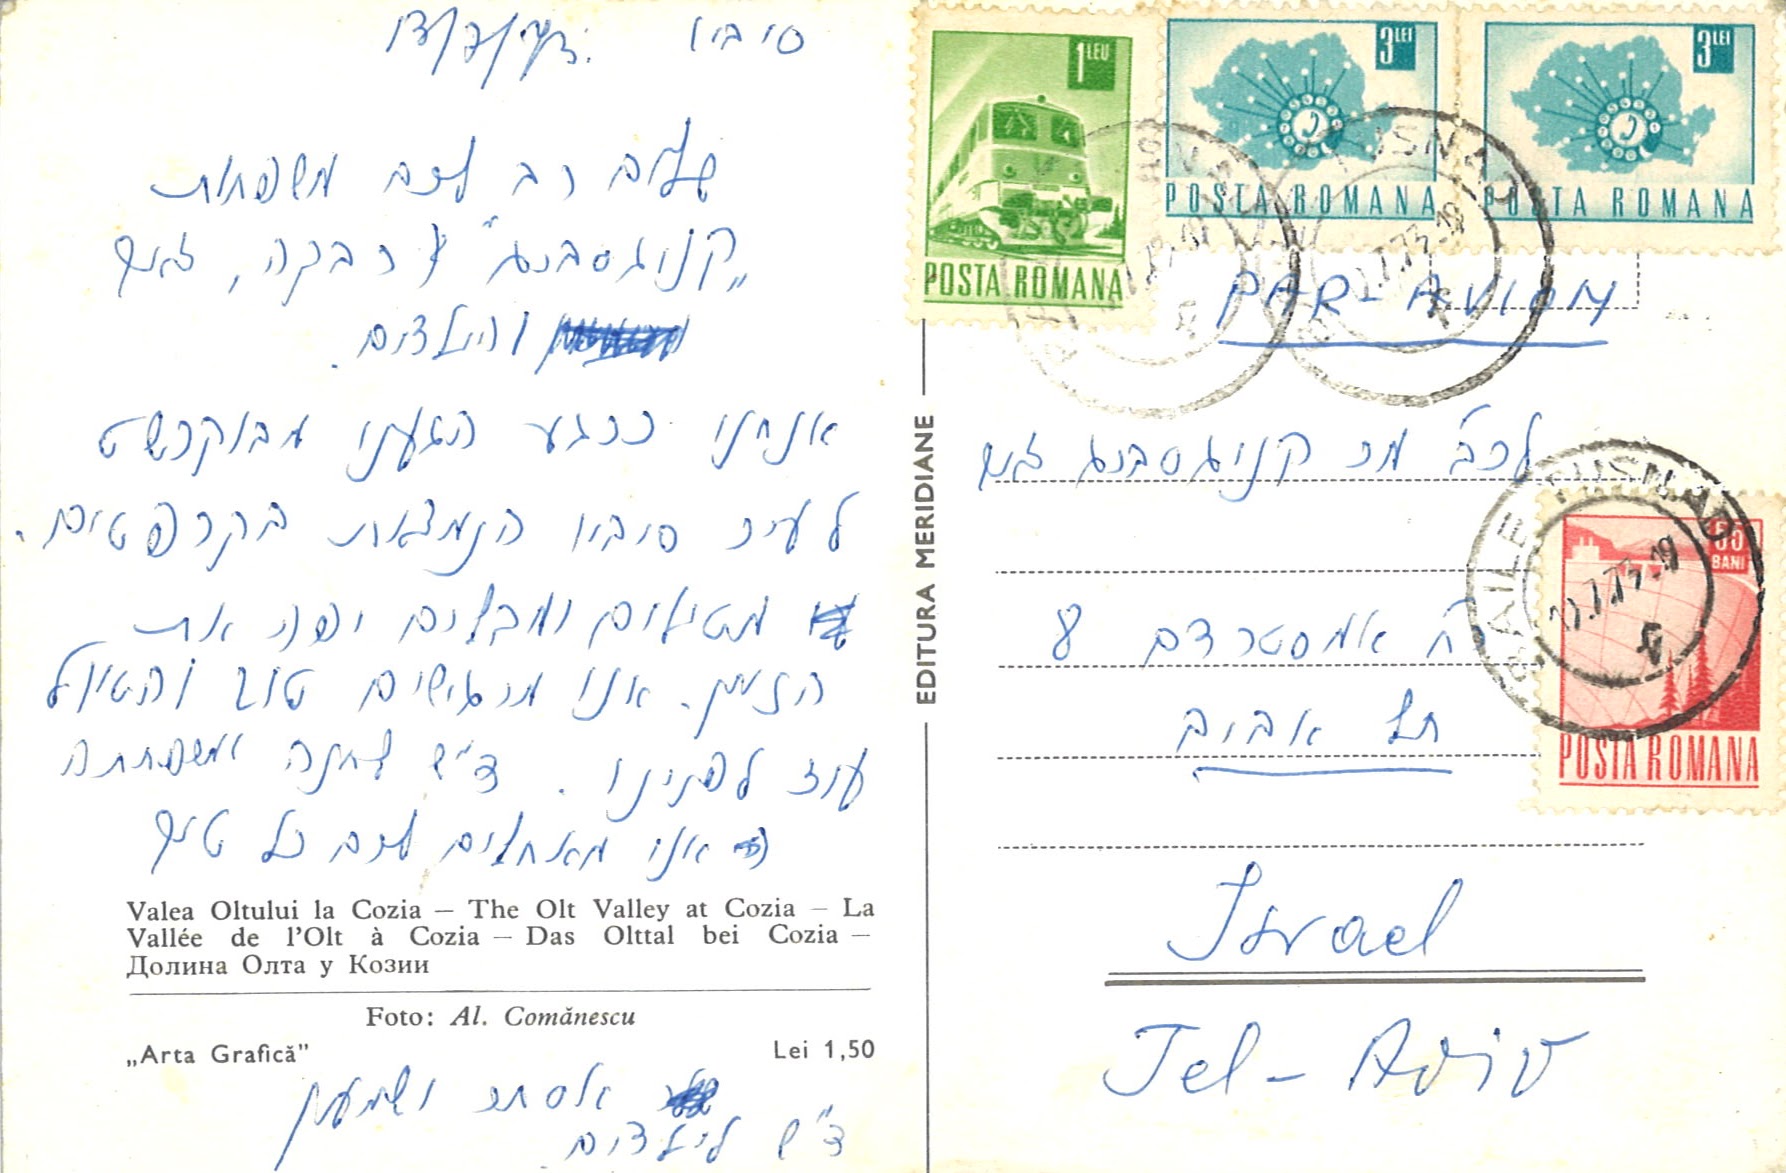 סיביו
שלום רב לכם משפחת
"קניגסברג" רבקה, זאב
והילדים.
אנחנו כרגע הגענו מבוקרשט
לעיר סיביו הנמצאת בקרפטים.
מטיילים ומבלים יפה את
הזמן. אנו מרגישים טוב והטיול
עוד לפנינו. ד"ש לחנה ומשפחתה
אנו מאחלים לכם כל טוב
Valea Oltului la Cozia — The Olt Valley at Cozia — La
Vallée de l'Olt à Cozia — Das Olttal bei Cozia —
Долина Олта у Козии
Foto: Al. Comănescu
„Arta Grafică" Lei 1,50
אסתר ושמעון
ד"ש לילדים
EDITURA MERIDIANE
1 LEU
POSTA ROMANA
3 LEI
POSTA ROMANA
3 LEI
POSTA ROMANA
TUSNAD
PAR-AVION
לכב' מר קניגסברג זאב
רח אמסטרדם 8
תל אביב
Israel
Tel-Aviv
55 BANI
POSTA ROMANA
BAILE TUSNAD